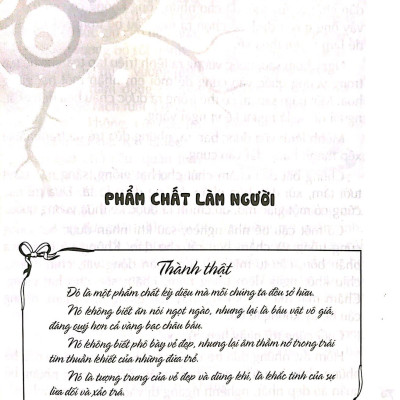 PHẨM CHẤT LÀM NGƯỜI
Thành thật
Đó là một phẩm chất kỳ diệu mà mỗi chúng ta đều sở hữu.
Nó không biết ăn nói ngọt ngào, nhưng lại là báu vật vô giá,
đáng quý hơn cả vàng bạc châu báu.
Nó không biết phô bày vẻ đẹp, nhưng lại âm thầm nở trong trái
tim thuần khiết của những đứa trẻ.
Nó là tượng trưng của vẻ đẹp và dũng khí, là khắc tinh của sự
lừa dối và xảo trá.